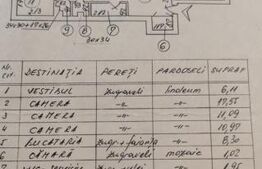 34x30+19x26
20x34
Nr. crt. DESTINAȚIA PEREȚI PARDOSELI SUPRAF
1 VESTIBUL zugraveli linoleum 6,11
2 CAMERA -"- -"- 17,55
3 CAMERA -"- -"- 11,09
4 CAMERA -"- -"- 10,97
5 BUCATARIA zugr+faianta -"- 8,30
6 CĂMARĂ zugraveli mozaic 1,02
7 -"- 1,95